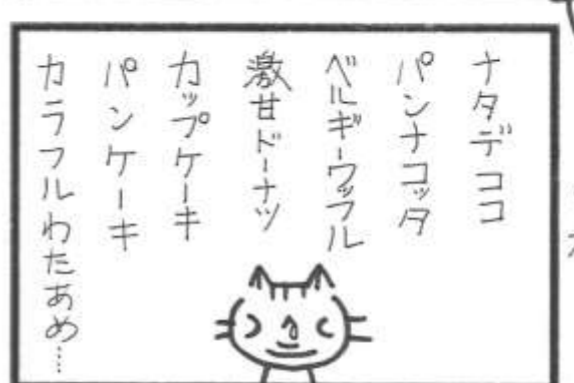 ナタデココ
パンナコッタ
ベルギーワッフル
激甘ドーナツ
カップケーキ
パンケーキ
カラフルわたあめ…